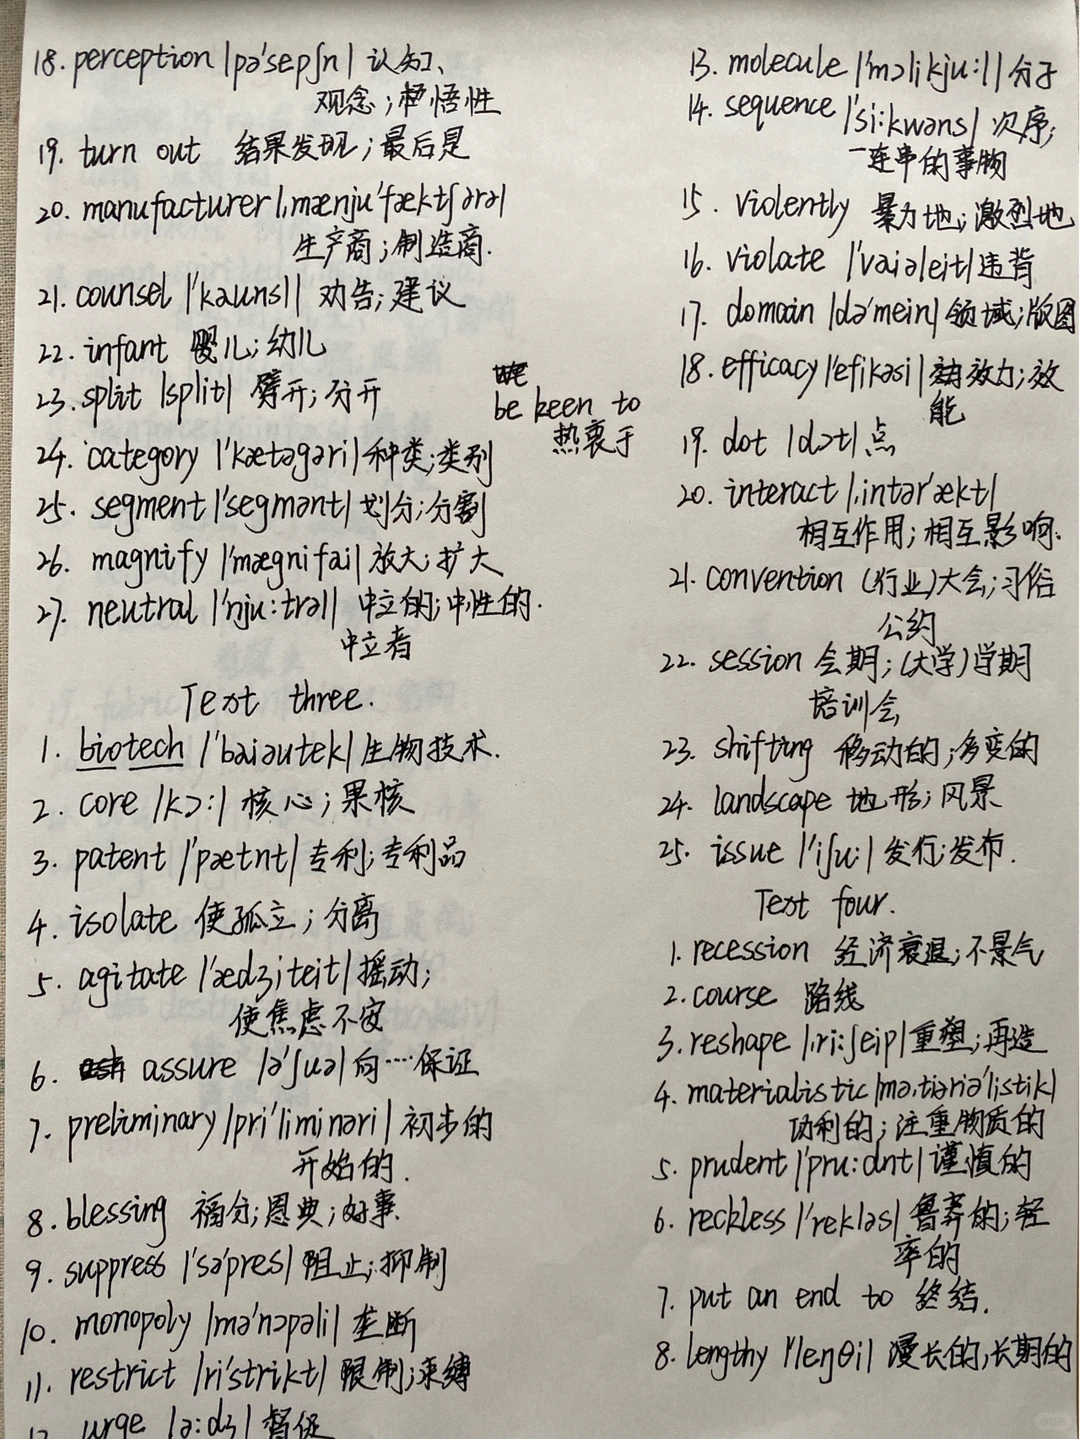 18. perception |pə'sepʃn| 认知、
观念；悟性
19. turn out 结果发现；最后是
20. manufacturer |,mænju'fæktʃərə|
生产商；制造商.
21. counsel |'kaunsl| 劝告；建议
22. infant 婴儿；幼儿
23. split |split| 劈开；分开
be keen to
热衷于
24. category |'kætəgəri| 种类；类别
25. segment |'segmənt| 划分；分割
26. magnify |'mægnifai| 放大；扩大
27. neutral |'nju:trəl| 中立的；中性的.
中立者
Text three.
1. biotech |'baiəutek| 生物技术.
2. core |kɔ:| 核心；果核
3. patent |'pætnt| 专利；专利品
4. isolate 使孤立；分离
5. agitate |'ædʒiteit| 摇动；
使焦虑不安
6. assure |ə'ʃuə| 向····保证
7. preliminary |pri'liminəri| 初步的
开始的.
8. blessing 福分；恩典；好事.
9. suppress |'sə'pres| 阻止；抑制
10. monopoly |mə'nɔpəli| 垄断
11. restrict |ri'strikt| 限制；束缚
12. urge |ə:dʒ| 督促
13. molecule |'mɔlikju:l| 分子
14. sequence |'si:kwəns| 次序；
一连串的事物
15. violently 暴力地；激烈地
16. violate |'vaiəleit| 违背
17. domain |də'mein| 领域；版图
18. efficacy |'efikəsi| 效力；效
能
19. dot |dɔt| 点
20. interact |,intər'ækt|
相互作用；相互影响.
21. convention (行业)大会；习俗
公约
22. session 会期；(大学)学期
培训会
23. shifting 移动的；多变的
24. landscape 地形；风景
25. issue |'iʃu:| 发行；发布.
Text four.
1. recession 经济衰退；不景气
2. course 路线
3. reshape |,ri:ʃeip| 重塑；再造
4. materialistic |mə,tiəriə'listik|
功利的；注重物质的
5. prudent |'pru:dnt| 谨慎的
6. reckless |'rekləs| 鲁莽的；轻
率的
7. put an end to 终结.
8. lengthy |'leŋθi| 漫长的，长期的